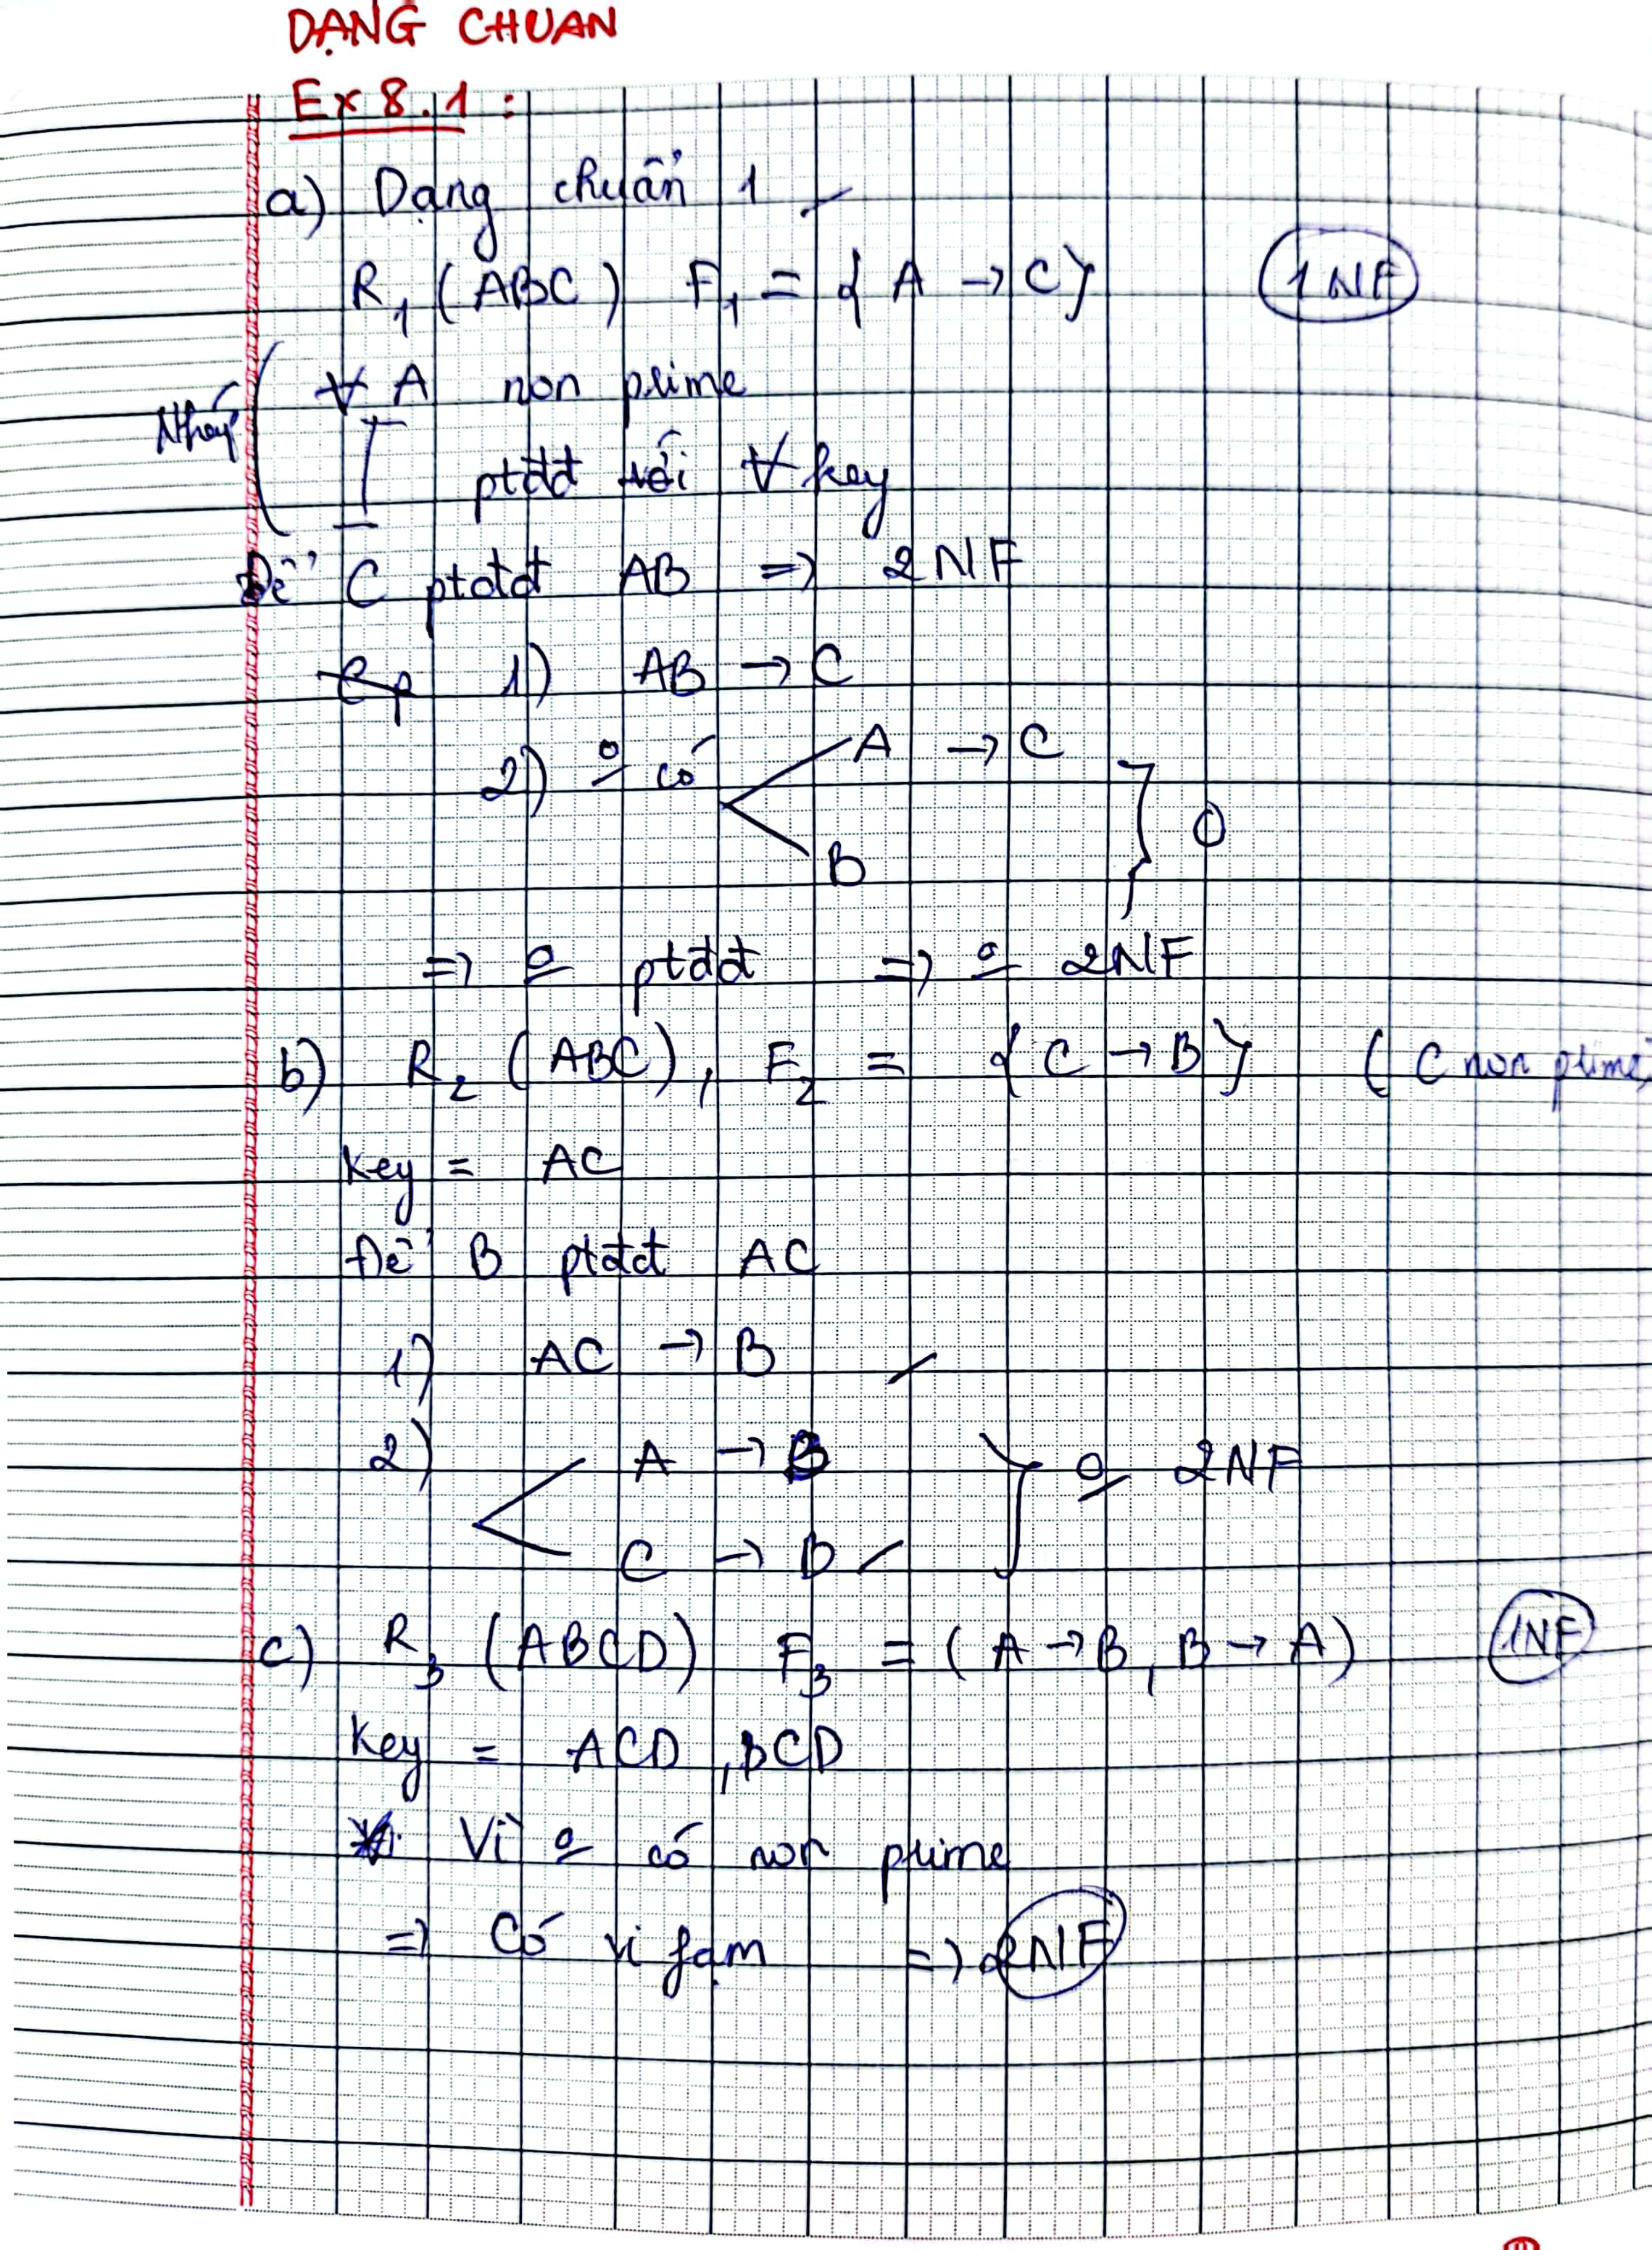 DẠNG CHUAN
Ex 8.1 :
a) Dạng chuẩn 1
R1 (ABC) F1 = { A → C} 1NF
Nháp ∀ A non prime
ptđđ với ∀ key
Để C ptđđ AB => 2NF
1) AB → C
2) o có A → C
B } 0
=> o ptđđ => o 2NF
b) R2 (ABC), F2 = { C → B } ( C non prime
Key = AC
Để B ptđđ AC
1) AC → B
2) A → B } o 2NF
C → B
c) R3 (ABCD) F3 = ( A → B, B → A) 1NF
Key = ACD, BCD
Vì o có non prime
=> Có vi fạm => 2NF